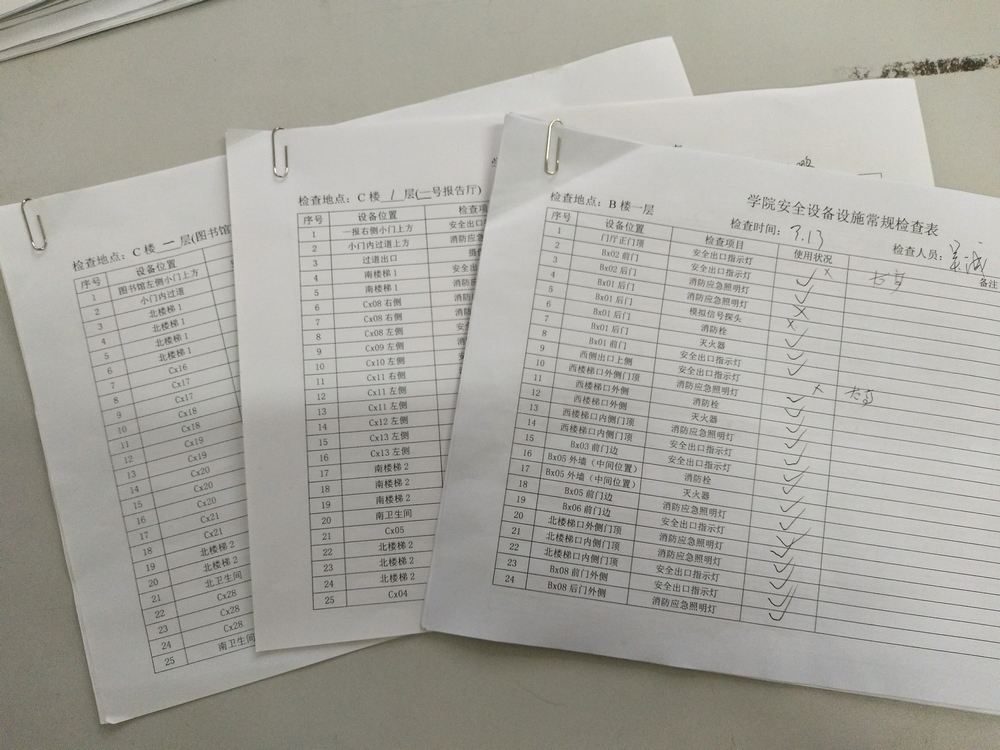 检查地点：C 楼 一 层(图书馆
序号 设备位置
1 图书馆左侧小门上方
2 小门内过道
3 北楼梯 1
4 北楼梯 1
5 北楼梯 1
6 北楼梯 1
7 Cx16
8 Cx17
9 Cx17
10 Cx18
11 Cx18
12 Cx19
13 Cx19
14 Cx20
15 Cx20
16 Cx21
17 Cx21
18 北楼梯 2
19 北楼梯 2
20 北楼梯 2
21 北卫生间
22 Cx28
23 Cx28
24 Cx28
25 南卫生间
检查地点：C 楼 1 层(二号报告厅)
序号 设备位置 检查项
1 一报右侧小门上方 安全出口
2 小门内过道上方 消防应急
3 过道出口
4 南楼梯 1 安全出
5 南楼梯 1 消防应
6 Cx08 右侧 消防
7 Cx08 右侧
8 Cx08 左侧
9 Cx09 左侧
10 Cx10 左侧
11 Cx11 右侧
12 Cx11 左侧
13 Cx11 左侧
14 Cx12 左侧
15 Cx13 左侧
16 Cx13 左侧
17 南楼梯 2
18 南楼梯 2
19 南楼梯 2
20 南卫生间
21 Cx05
22 北楼梯 2
23 北楼梯 2
24 北楼梯 2
25 Cx04
学院安全设备设施常规检查表
检查地点：B 楼一层 检查时间：3.13 检查人员：
序号 设备位置 检查项目 使用状况 备注
1 门厅正门顶 安全出口指示灯
2 Bx02 前门 安全出口指示灯
3 Bx02 后门 消防应急照明灯
4 Bx01 后门 消防应急照明灯
5 Bx01 后门 模拟信号探头
6 Bx01 后门 消防栓
7 Bx01 后门 灭火器
8 Bx01 前门 安全出口指示灯
9 西侧出口上侧 安全出口指示灯
10 西楼梯口外侧门顶 消防应急照明灯
11 西楼梯口外侧 消防栓
12 西楼梯口外侧 灭火器
13 西楼梯口内侧门顶 消防应急照明灯
14 西楼梯口内侧门顶 安全出口指示灯
15 Bx03 前门边 安全出口指示灯
16 Bx05 外墙（中间位置） 消防栓
17 Bx05 外墙（中间位置） 灭火器
18 Bx05 前门边 消防应急照明灯
19 Bx06 前门边 安全出口指示灯
20 北楼梯口外侧门顶 消防应急照明灯
21 北楼梯口内侧门顶 消防应急照明灯
22 北楼梯口内侧门顶 安全出口指示灯
23 Bx08 前门外侧 安全出口指示灯
24 Bx08 后门外侧 消防应急照明灯